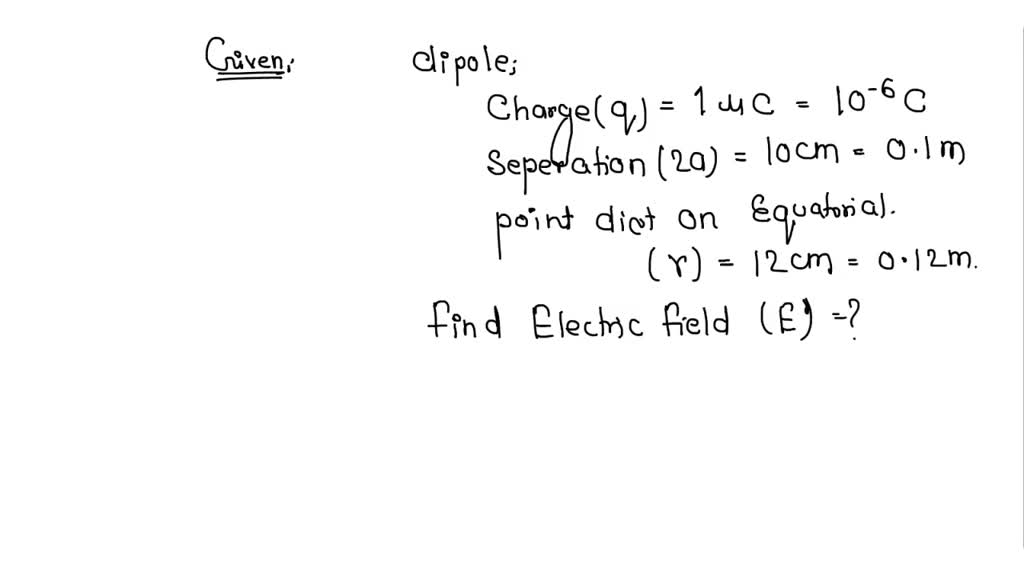 Given: dipole;
Charge(q) = 1 μC = 10⁻⁶ C
Seperation (2a) = 10cm = 0.1m
point dist on Equatorial.
(r) = 12cm = 0.12m.
find Electric field (E) =?